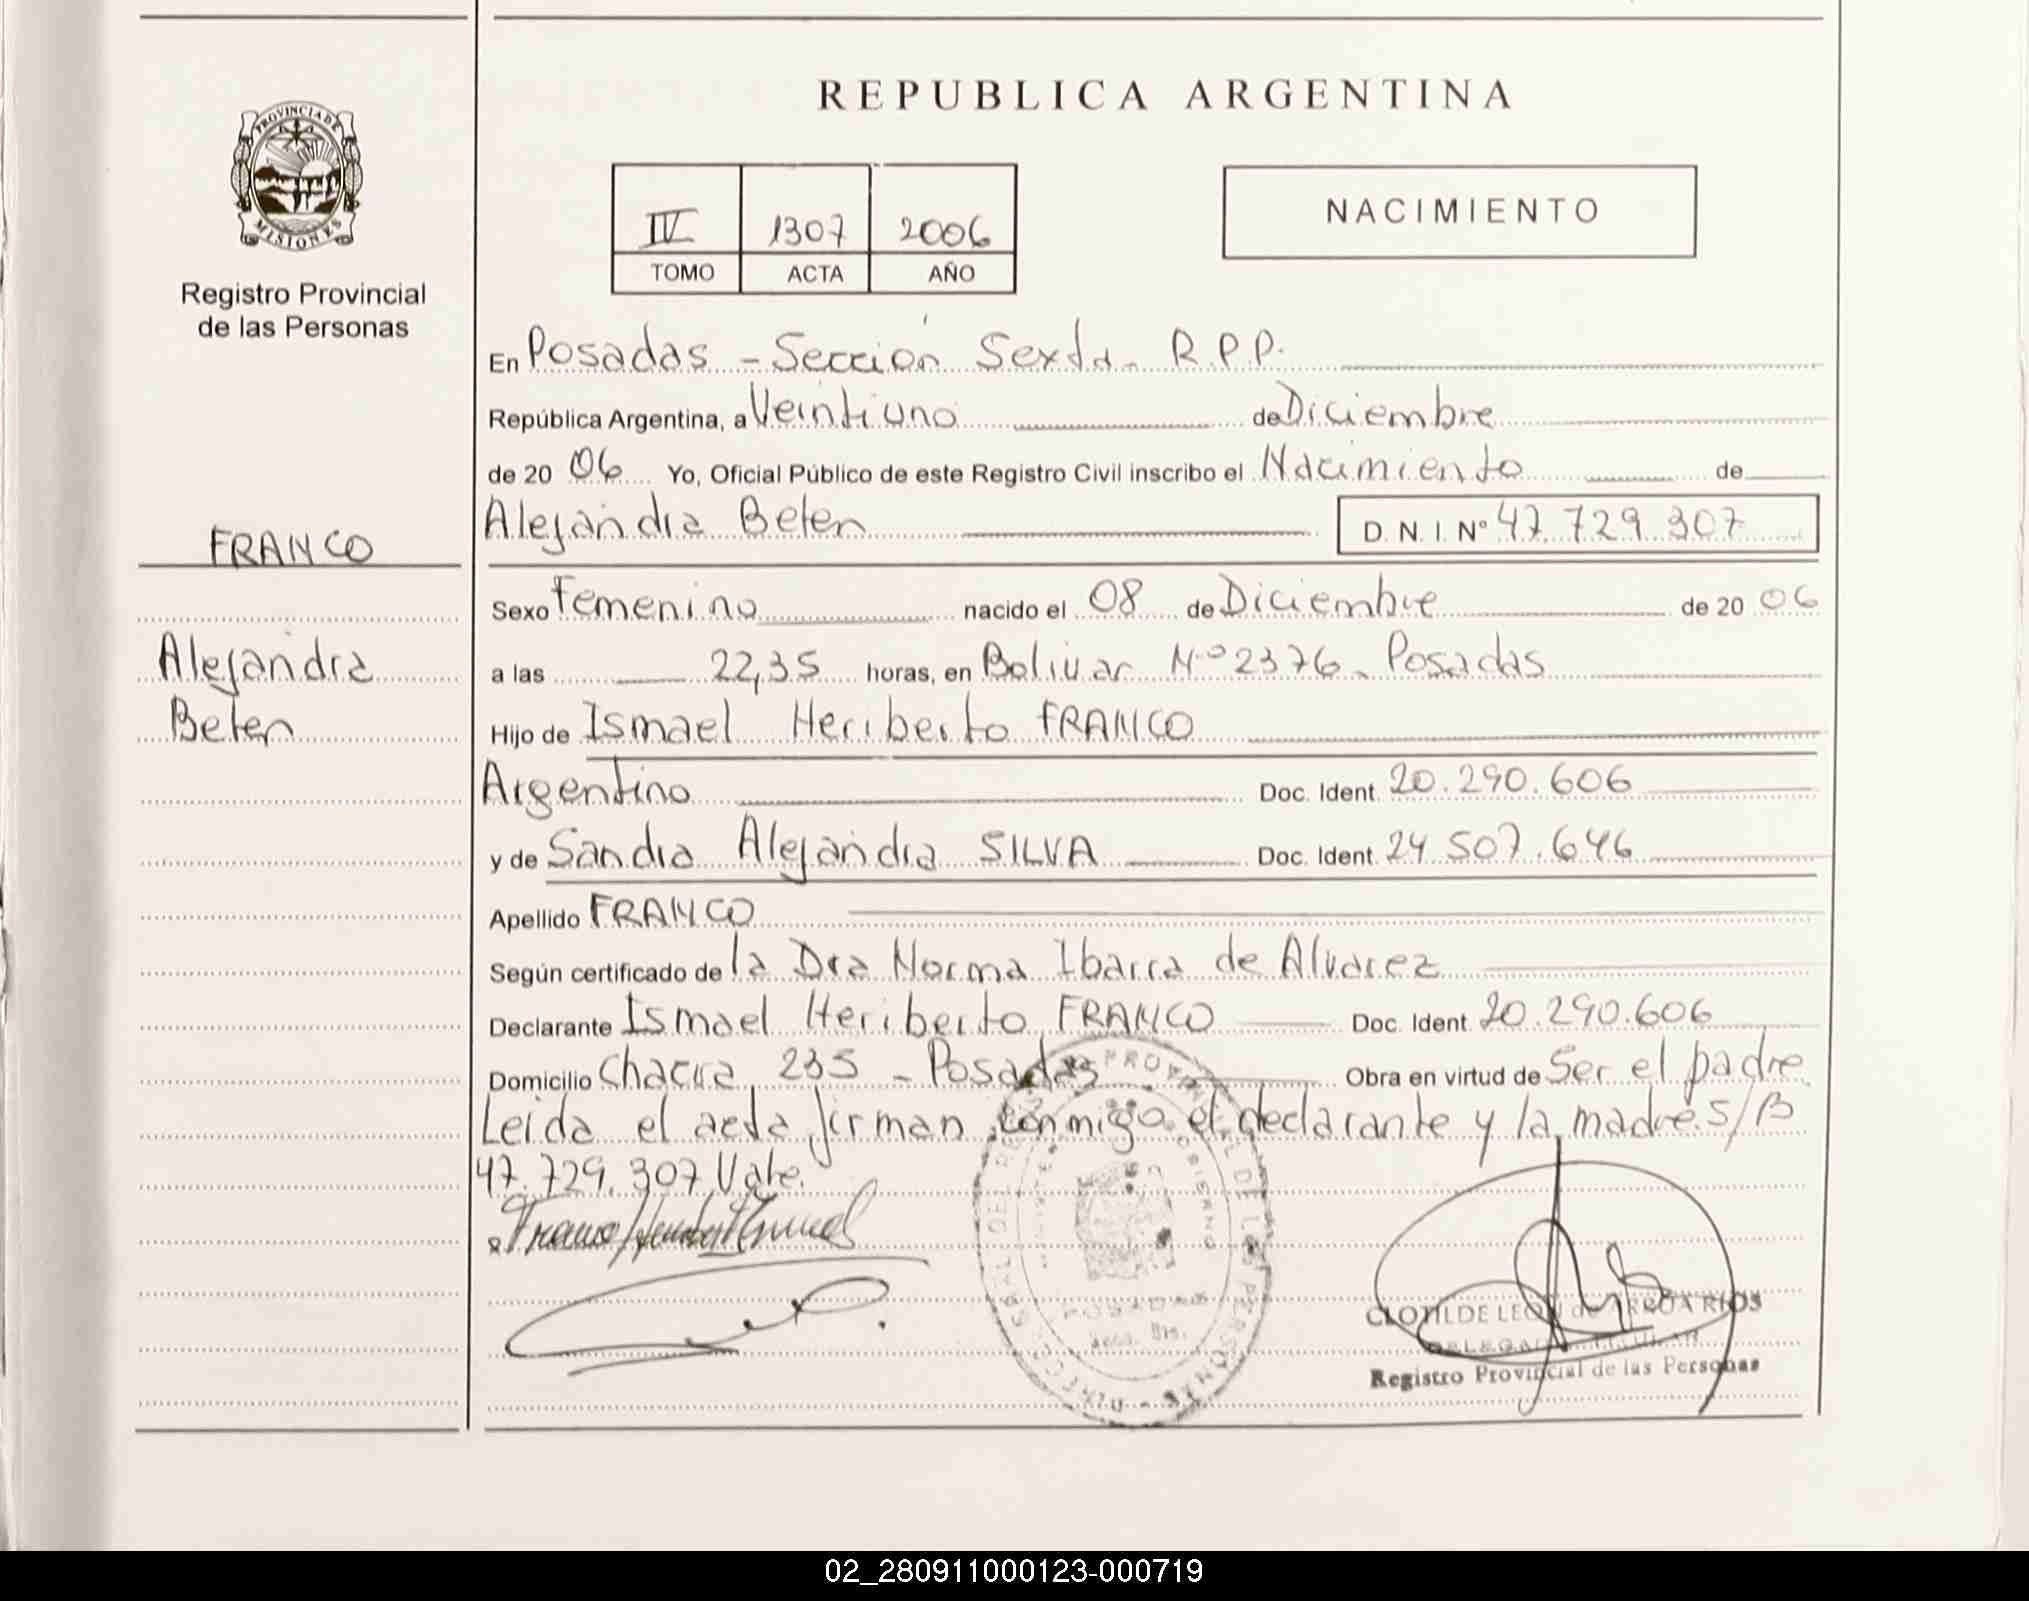 REPUBLICA ARGENTINA
PROVINCIA DE
MISIONES
Registro Provincial
de las Personas
IV 1307 2006
TOMO ACTA AÑO
NACIMIENTO
En Posadas - Sección Sexta. R.P.P.
República Argentina, a Veintiuno de Diciembre
de 20 06 Yo, Oficial Público de este Registro Civil inscribo el Nacimiento de
Alejandra Belen D. N. I. Nº 47.729.307
FRANCO
Alejandra
Belen
Sexo Femenino nacido el 08 de Diciembre de 20 06
a las 22,35 horas, en Bolivar Nº 2376 - Posadas
Hijo de Ismael Heriberto FRANCO
Argentino Doc. Ident. 20.290.606
y de Sandra Alejandra SILVA Doc. Ident. 24.507.646
Apellido FRANCO
Según certificado de la Dra Norma Ibarra de Alvarez
Declarante Ismael Heriberto FRANCO Doc. Ident. 20.290.606
Domicilio Chacra 235 - Posadas Obra en virtud de Ser el padre
Leida el acta firman conmigo el declarante y la madre. S/B
47.729.307 Vale.
POSADAS
CLOTILDE LEON de ARRUA RIOS
DELEGADA TITULAR
Registro Provincial de las Personas
02_280911000123-000719